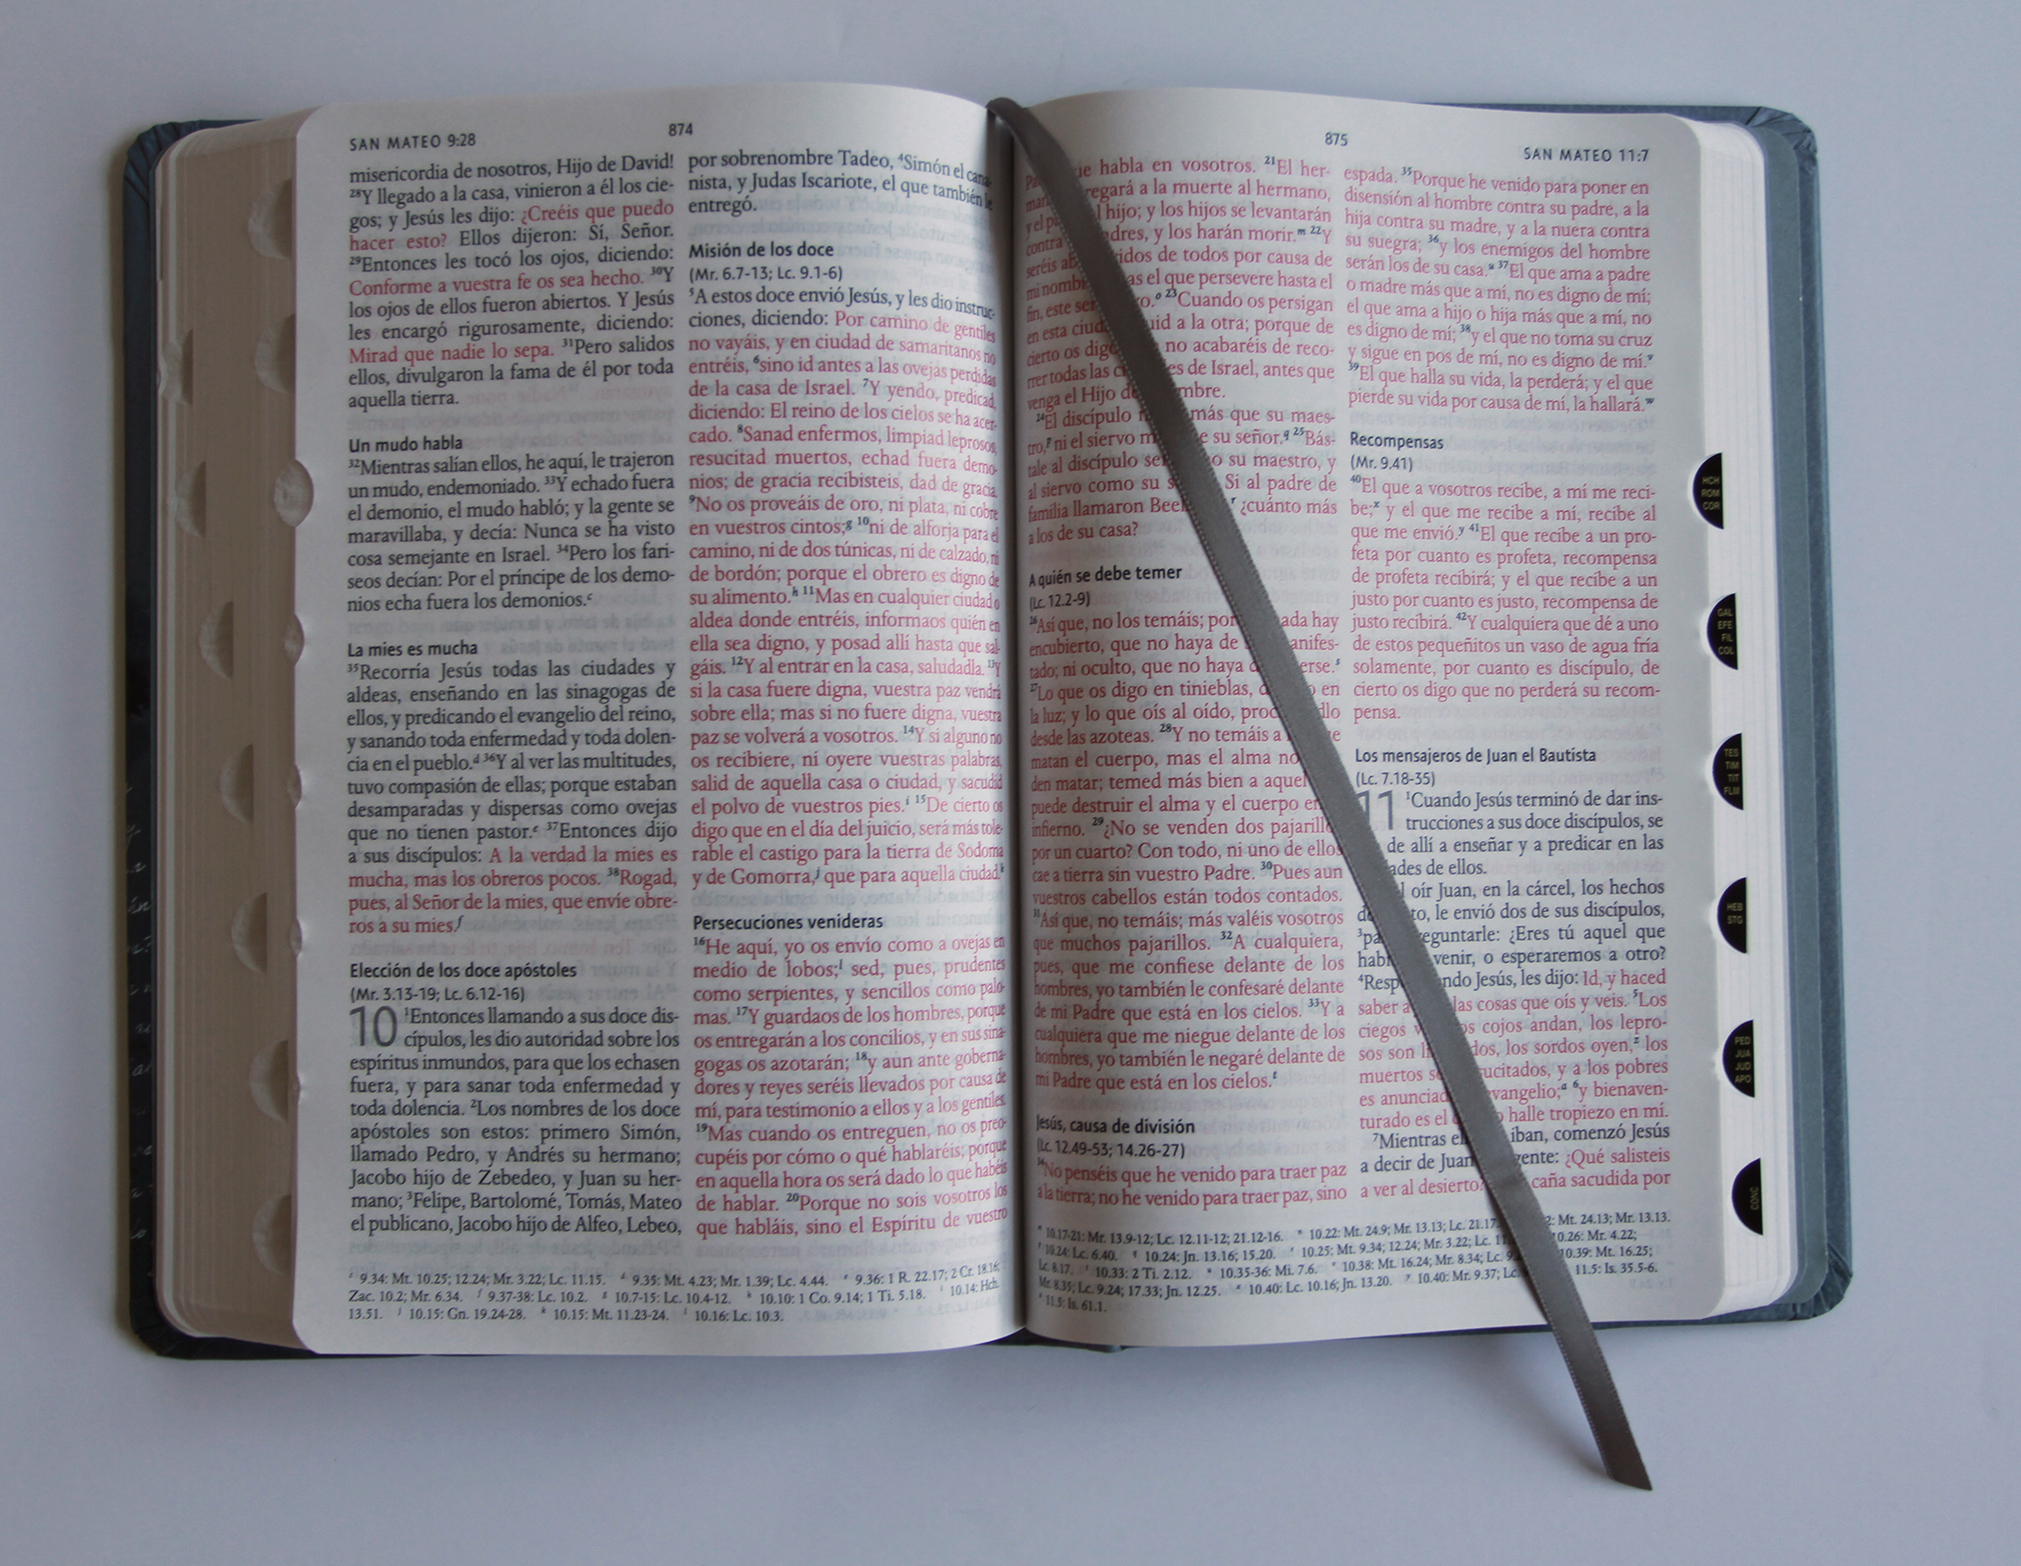 SAN MATEO 9:28
874
misericordia de nosotros, Hijo de David!
²⁸Y llegado a la casa, vinieron a él los cie-
gos; y Jesús les dijo: ¿Creéis que puedo
hacer esto? Ellos dijeron: Sí, Señor.
²⁹Entonces les tocó los ojos, diciendo:
Conforme a vuestra fe os sea hecho. ³⁰Y
los ojos de ellos fueron abiertos. Y Jesús
les encargó rigurosamente, diciendo:
Mirad que nadie lo sepa. ³¹Pero salidos
ellos, divulgaron la fama de él por toda
aquella tierra.
Un mudo habla
³²Mientras salían ellos, he aquí, le trajeron
un mudo, endemoniado. ³³Y echado fuera
el demonio, el mudo habló; y la gente se
maravillaba, y decía: Nunca se ha visto
cosa semejante en Israel. ³⁴Pero los fari-
seos decían: Por el príncipe de los demo-
nios echa fuera los demonios.ᶜ
La mies es mucha
³⁵Recorría Jesús todas las ciudades y
aldeas, enseñando en las sinagogas de
ellos, y predicando el evangelio del reino,
y sanando toda enfermedad y toda dolen-
cia en el pueblo.ᵈ ³⁶Y al ver las multitudes,
tuvo compasión de ellas; porque estaban
desamparadas y dispersas como ovejas
que no tienen pastor.ᵉ ³⁷Entonces dijo
a sus discípulos: A la verdad la mies es
mucha, mas los obreros pocos. ³⁸Rogad,
pues, al Señor de la mies, que envíe obre-
ros a su mies.ᶠ
Elección de los doce apóstoles
(Mr. 3.13-19; Lc. 6.12-16)
10 ¹Entonces llamando a sus doce dis-
cípulos, les dio autoridad sobre los
espíritus inmundos, para que los echasen
fuera, y para sanar toda enfermedad y
toda dolencia. ²Los nombres de los doce
apóstoles son estos: primero Simón,
llamado Pedro, y Andrés su hermano;
Jacobo hijo de Zebedeo, y Juan su her-
mano; ³Felipe, Bartolomé, Tomás, Mateo
el publicano, Jacobo hijo de Alfeo, Lebeo,
por sobrenombre Tadeo, ⁴Simón el cana-
nista, y Judas Iscariote, el que también le
entregó.
Misión de los doce
(Mr. 6.7-13; Lc. 9.1-6)
⁵A estos doce envió Jesús, y les dio instruc-
ciones, diciendo: Por camino de gentiles
no vayáis, y en ciudad de samaritanos no
entréis, ⁶sino id antes a las ovejas perdidas
de la casa de Israel. ⁷Y yendo, predicad,
diciendo: El reino de los cielos se ha acer-
cado. ⁸Sanad enfermos, limpiad leprosos,
resucitad muertos, echad fuera demo-
nios; de gracia recibisteis, dad de gracia.
⁹No os proveáis de oro, ni plata, ni cobre
en vuestros cintos;ᵍ ¹⁰ni de alforja para el
camino, ni de dos túnicas, ni de calzado, ni
de bordón; porque el obrero es digno de
su alimento.ʰ ¹¹Mas en cualquier ciudad o
aldea donde entréis, informaos quién en
ella sea digno, y posad allí hasta que sal-
gáis. ¹²Y al entrar en la casa, saludadla. ¹³Y
si la casa fuere digna, vuestra paz vendrá
sobre ella; mas si no fuere digna, vuestra
paz se volverá a vosotros. ¹⁴Y si alguno no
os recibiere, ni oyere vuestras palabras,
salid de aquella casa o ciudad, y sacudid
el polvo de vuestros pies.ⁱ ¹⁵De cierto os
digo que en el día del juicio, será más tole-
rable el castigo para la tierra de Sodoma
y de Gomorra,ʲ que para aquella ciudad.ᵏ
Persecuciones venideras
¹⁶He aquí, yo os envío como a ovejas en
medio de lobos;ˡ sed, pues, prudentes
como serpientes, y sencillos como palo-
mas. ¹⁷Y guardaos de los hombres, porque
os entregarán a los concilios, y en sus sina-
gogas os azotarán; ¹⁸y aun ante goberna-
dores y reyes seréis llevados por causa de
mí, para testimonio a ellos y a los gentiles.
¹⁹Mas cuando os entreguen, no os preo-
cupéis por cómo o qué hablaréis; porque
en aquella hora os será dado lo que habéis
de hablar. ²⁰Porque no sois vosotros los
que habláis, sino el Espíritu de vuestro
ᶜ 9.34: Mt. 10.25; 12.24; Mr. 3.22; Lc. 11.15. ᵈ 9.35: Mt. 4.23; Mr. 1.39; Lc. 4.44. ᵉ 9.36: 1 R. 22.17; 2 Cr. 18.16;
Zac. 10.2; Mr. 6.34. ᶠ 9.37-38: Lc. 10.2. ᵍ 10.7-15: Lc. 10.4-12. ʰ 10.10: 1 Co. 9.14; 1 Ti. 5.18. ⁱ 10.14: Hch.
13.51. ʲ 10.15: Gn. 19.24-28. ᵏ 10.15: Mt. 11.23-24. ˡ 10.16: Lc. 10.3.
875
SAN MATEO 11:7
que habla en vosotros. ²¹El her-
a la muerte al hermano,
y el hijo; y los hijos se levantarán
contra y los harán morir.ᵐ ²²Y
seréis de todos por causa de
mi el que persevere hasta el
fin, este ᵒ ²³Cuando os persigan
en esta a la otra; porque de
cierto os no acabaréis de reco-
rrer todas las de Israel, antes que
venga el Hijo
²⁴El discípulo más que su maes-
tro,ᵖ ni el siervo su señor.ᑫ ²⁵Bás-
tale al discípulo su maestro, y
al siervo como su Si al padre de
familia llamaron ʳ ¿cuánto más
a los de su casa?
A quién se debe temer
(Lc. 12.2-9)
²⁶Así que, no los temáis; hay
encubierto, que no haya de
tado; ni oculto, que no haya ˢ
²⁷Lo que os digo en tinieblas, en
la luz; y lo que oís al oído,
desde las azoteas. ²⁸Y no temáis a
matan el cuerpo, mas el alma no
den matar; temed más bien a
puede destruir el alma y el cuerpo
infierno. ²⁹¿No se venden dos
por un cuarto? Con todo, ni uno de ellos
cae a tierra sin vuestro Padre. ³⁰Pues aun
vuestros cabellos están todos contados.
³¹Así que, no temáis; más valéis vosotros
que muchos pajarillos. ³²A cualquiera,
pues, que me confiese delante de los
hombres, yo también le confesaré delante
de mi Padre que está en los cielos. ³³Y a
cualquiera que me niegue delante de los
hombres, yo también le negaré delante de
mi Padre que está en los cielos.ᵗ
Jesús, causa de división
(Lc. 12.49-53; 14.26-27)
³⁴No penséis que he venido para traer paz
a la tierra; no he venido para traer paz, sino
espada. ³⁵Porque he venido para poner en
disensión al hombre contra su padre, a la
hija contra su madre, y a la nuera contra
su suegra; ³⁶y los enemigos del hombre
serán los de su casa.ᵘ ³⁷El que ama a padre
o madre más que a mí, no es digno de mí;
el que ama a hijo o hija más que a mí, no
es digno de mí; ³⁸y el que no toma su cruz
y sigue en pos de mí, no es digno de mí.ᵛ
³⁹El que halla su vida, la perderá; y el que
pierde su vida por causa de mí, la hallará.ʷ
Recompensas
(Mr. 9.41)
⁴⁰El que a vosotros recibe, a mí me reci-
be;ˣ y el que me recibe a mí, recibe al
que me envió.ʸ ⁴¹El que recibe a un pro-
feta por cuanto es profeta, recompensa
de profeta recibirá; y el que recibe a un
justo por cuanto es justo, recompensa de
justo recibirá. ⁴²Y cualquiera que dé a uno
de estos pequeñitos un vaso de agua fría
solamente, por cuanto es discípulo, de
cierto os digo que no perderá su recom-
pensa.
Los mensajeros de Juan el Bautista
(Lc. 7.18-35)
11 ¹Cuando Jesús terminó de dar ins-
trucciones a sus doce discípulos, se
de allí a enseñar y a predicar en las
de ellos.
oír Juan, en la cárcel, los hechos
le envió dos de sus discípulos,
³ ¿Eres tú aquel que
venir, o esperaremos a otro?
⁴ Jesús, les dijo: Id, y haced
saber las cosas que oís y veis. ⁵Los
ciegos cojos andan, los lepro-
sos son los sordos oyen,ᶻ los
muertos y a los pobres
es ᵃ ⁶y bienaven-
turado es el halle tropiezo en mí.
⁷Mientras iban, comenzó Jesús
a decir de Juan ¿Qué salisteis
a ver al desierto? caña sacudida por
10.17-21: Mr. 13.9-12; Lc. 12.11-12; 21.12-16. 10.22: Mt. 24.9; Mr. 13.13; Lc. 21.17. Mt. 24.13; Mr. 13.13.
10.24: Lc. 6.40. 10.24: Jn. 13.16; 15.20. 10.25: Mt. 9.34; 12.24; Mr. 3.22; Lc. 10.26: Mr. 4.22;
Lc. 8.17. 10.33: 2 Ti. 2.12. 10.35-36: Mi. 7.6. 10.38: Mt. 16.24; Mr. 8.34; Lc. 10.39: Mt. 16.25;
Mr. 8.35; Lc. 9.24; 17.33; Jn. 12.25. 10.40: Lc. 10.16; Jn. 13.20. 10.40: Mr. 9.37; Lc. 11.5: Is. 35.5-6.
11.5: Is. 61.1.
HCH
ROM
COR
GAL
EFE
FIL
COL
TES
TIM
TIT
FLM
HEB
STG
PED
JUA
JUD
APO
CONC